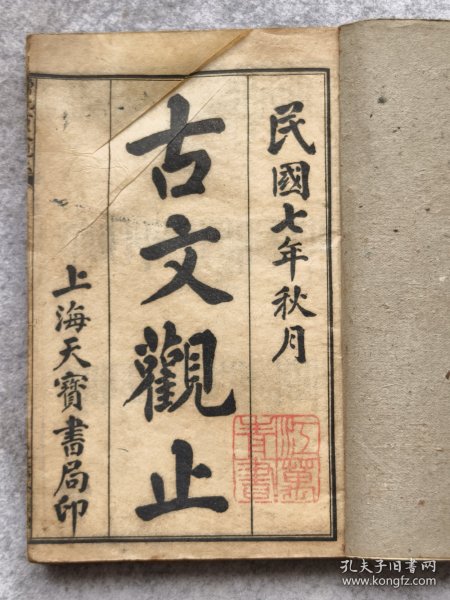 民國七年秋月
古文觀止
上海天寶書局印
孔夫子旧书网
www.kongfz.com